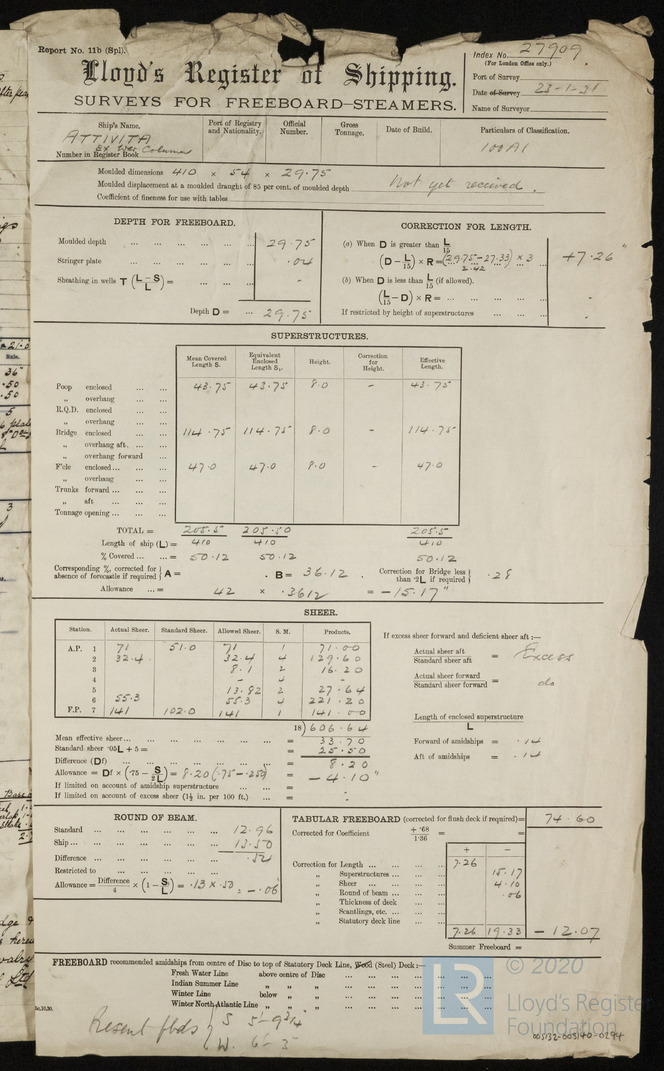 Report No. 11b (Spl).
Lloyd's Register of Shipping.
SURVEYS FOR FREEBOARD—STEAMERS.
Index No. 27909.
(For London Office only.)
Port of Survey
Date of Survey 23-1-31
Name of Surveyor
Ship's Name. Port of Registry and Nationality. Official Number. Gross Tonnage. Date of Build. Particulars of Classification.
ATTIVITA
Ex War Column
Number in Register Book
100A1
Moulded dimensions 410 × 54 × 29.75
Moulded displacement at a moulded draught of 85 per cent. of moulded depth Not yet received.
Coefficient of fineness for use with tables
DEPTH FOR FREEBOARD.
Moulded depth ... 29.75
Stringer plate ... .04
Sheathing in wells T (L–S / L) = -
Depth D = ... 29.75
CORRECTION FOR LENGTH.
(a) When D is greater than L/15
(D – L/15) × R = (29.75–27.33) × 3 +7.26"
2.42
(b) When D is less than L/15 (if allowed).
(L/15 – D) × R = ... -
If restricted by height of superstructures ... -
SUPERSTRUCTURES.
Mean Covered Length S. Equivalent Enclosed Length S₁. Height. Correction for Height. Effective Length.
Poop enclosed 43.75 43.75 8.0 - 43.75
„ overhang
R.Q.D. enclosed
„ overhang
Bridge enclosed 114.75 114.75 8.0 - 114.75
„ overhang aft
„ overhang forward
F'cle enclosed 47.0 47.0 8.0 - 47.0
„ overhang
Trunks forward
„ aft
Tonnage opening
TOTAL = 205.5 205.50 205.5
Length of ship (L) = 410 410 410
% Covered = 50.12 50.12 50.12
Corresponding %, corrected for absence of forecastle if required } A = . B = 36.12 . Correction for Bridge less than ·2L if required } .28
Allowance = 42 × .3612 = –15.17"
SHEER.
Station. Actual Sheer. Standard Sheer. Allowed Sheer. S. M. Products.
A.P. 1 71 51.0 71 1 71.00
2 32.4 32.4 4 129.60
3 8.1 2 16.20
4 - 4 -
5 13.82 2 27.64
6 55.3 55.3 4 221.20
F.P. 7 141 102.0 141 1 141.00
18) 606.64
Mean effective sheer = 33.70
Standard sheer ·05L + 5 = 25.50
Difference (Df) = 8.20
Allowance = Df × (·75 – S/2L) = 8.20 (.75–.250) = –4.10"
If limited on account of amidship superstructure = -
If limited on account of excess sheer (1½ in. per 100 ft.) =
If excess sheer forward and deficient sheer aft :—
Actual sheer aft / Standard sheer aft = Excess
Actual sheer forward / Standard sheer forward = do
Length of enclosed superstructure / L
Forward of amidships = .14
Aft of amidships = .14
ROUND OF BEAM.
Standard 12.96
Ship 13.50
Difference .54
Restricted to
Allowance = Difference/4 × (1 – S/L) = .13 × .50 = –.06
TABULAR FREEBOARD (corrected for flush deck if required) = 74.60
Corrected for Coefficient + ·68 / 1·36 = =
+ –
Correction for Length 7.26
„ Superstructures 15.17
„ Sheer 4.10
„ Round of beam .06
„ Thickness of deck
„ Scantlings, etc.
„ Statutory deck line
7.26 19.33 –12.07
Summer Freeboard =
FREEBOARD recommended amidships from centre of Disc to top of Statutory Deck Line, Wood (Steel) Deck :—
Fresh Water Line above centre of Disc
Indian Summer Line „ „ „
Winter Line below „ „
Winter North Atlantic Line „ „ „
Present fbds { S 5'-9¾"
W. 6'-3"
© 2020
LR
Lloyd's Register
Foundation
005132-005140-0294